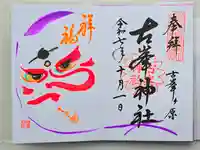 奉拝
古峯ヶ原
古峯神社
令和七年十月一日
祥福